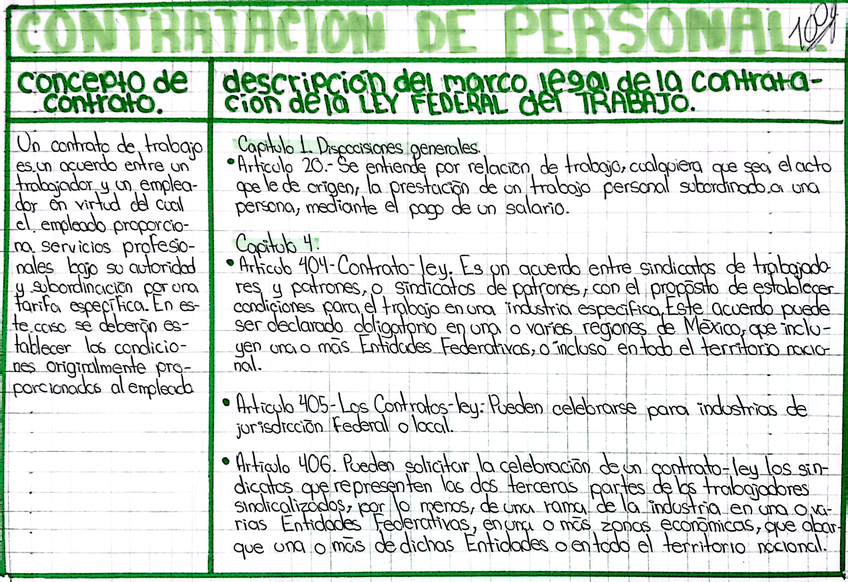 CONTRATACION DE PERSONAL.
100
concepto de
contrato.
Un contrato de trabajo
es un acuerdo entre un
trabajador y un emplea-
dor en virtud del cual
el empleado proporcio-
na servicios profesio-
nales bajo su autoridad
y subordinación por una
tarifa especifica. En es-
te caso se deberán es-
tablecer las condicio-
nes originalmente pro-
porcionados al empleado
descripción del marco legal de la contrata-
ción de la LEY FEDERAL del TRABAJO.
Capitulo 1. Disposiciones generales.
• Articulo 20.- Se entiende por relación de trabajo, cualquiera que sea el acto
que le de origen, la prestación de un trabajo personal subordinado a una
persona, mediante el pago de un salario.
Capitulo 4.
• Articulo 404-Contrato-ley. Es un acuerdo entre sindicatos de trabajado-
res y patrones, o sindicatos de patrones, con el propósito de establecer
condiciones para el trabajo en una industria especifica. Este acuerdo puede
ser declarado obligatorio en una o varias regiones de México, que inclu-
yen una o más Entidades Federativas, o incluso en todo el territorio nacio-
nal.
• Articulo 405-Los Contratos-ley: Pueden celebrarse para industrias de
jurisdicción Federal o local.
• Articulo 406. Pueden solicitar la celebración de un contrato-ley los sin-
dicatos que representen las dos terceras partes de los trabajadores
sindicalizados, por lo menos, de una rama de la industria en una o va-
rias Entidades Federativas, en una o más zonas económicas, que abar-
que una o más de dichas Entidades o en todo el territorio nacional.